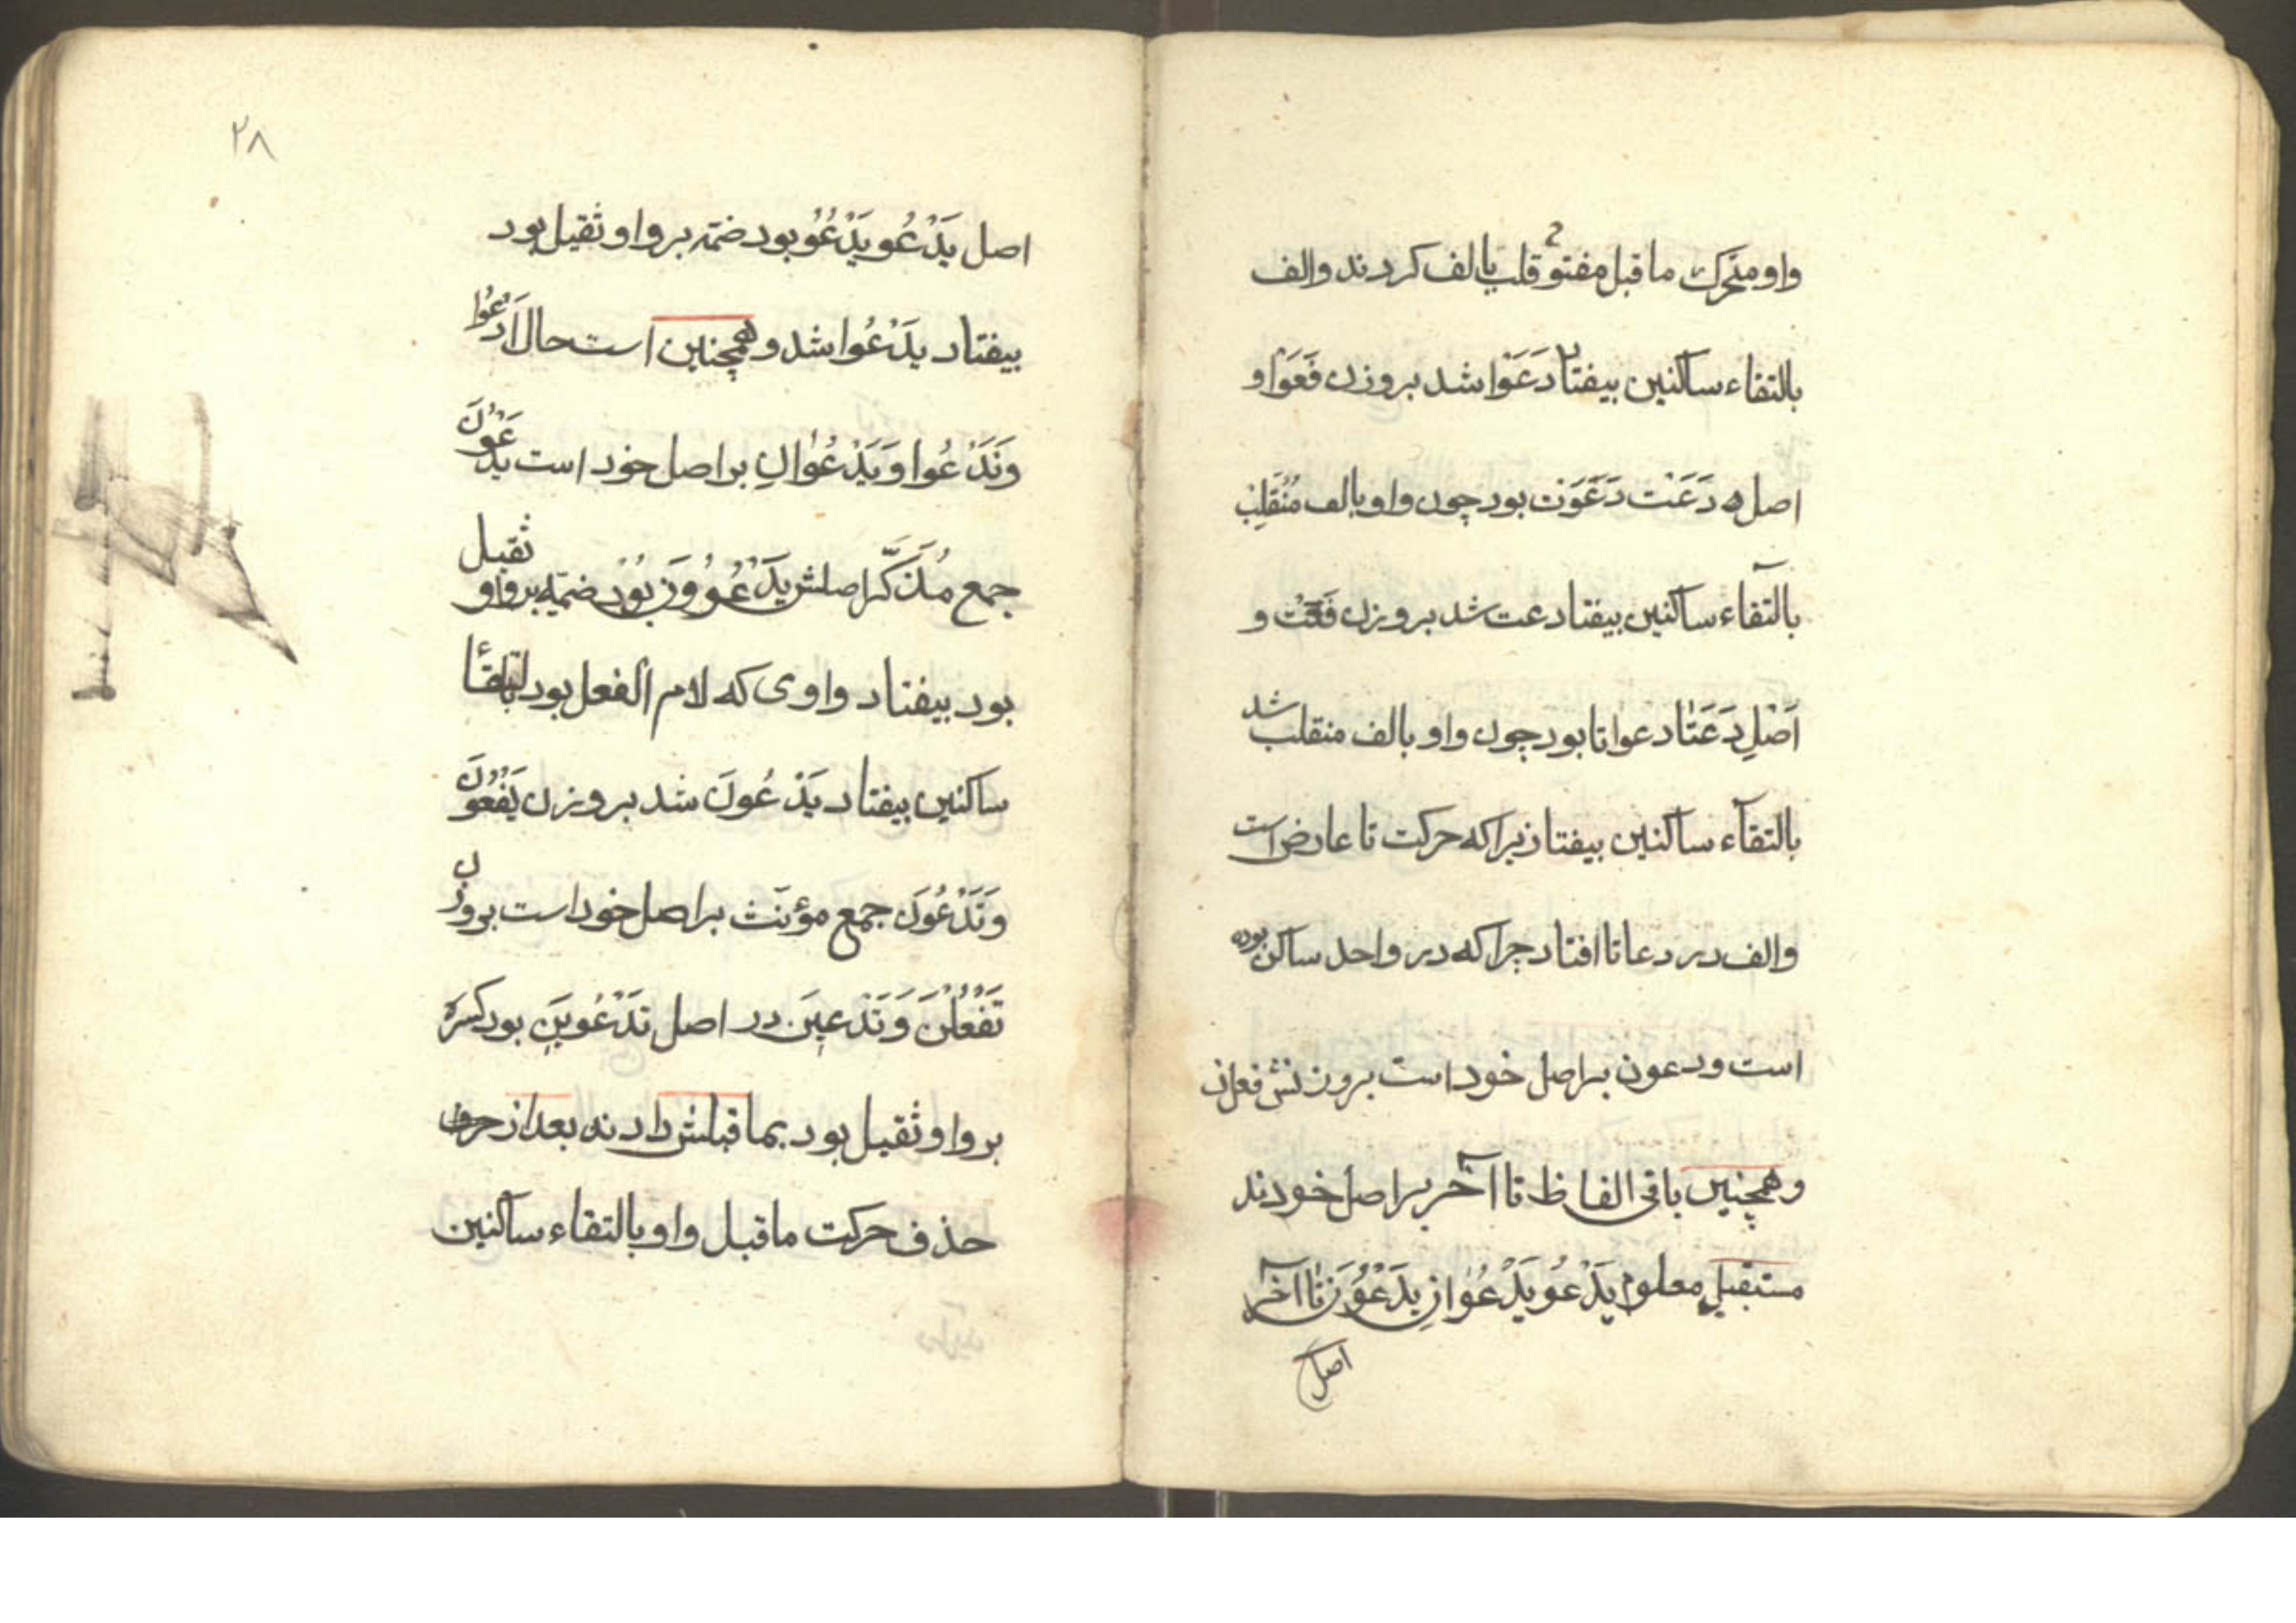 واو متحرک ماقبل مفتوح قلب بالف کردند والف
بالتقاء ساکنین بیفتاد دَعَوْا شد بروزن فَعَوْا و
اصل ه دَعَتْ دَعَوَتْ بود چون واو بالف مُنْقَلِبْ
بالتقآء ساکنین بیفتاد دعت شد بروزن فَعَتْ و
اَصْلِ دَعَتٰا دعواتا بود چون واو بالف منقلب شد
بالتقآء ساکنین بیفتاد زیراکه حرکت تا عارض است
والف در دعاتا افتاد چراکه در واحد ساکن بوده
است ودعون براصل خود است بروزنش فعلن
وهمچنین باقی الفاظ تا آخر براصل خودند
مستقبلِ معلوم یَدْعُو یَدْعُوٰانِ یَدْعُوُنَ تٰا آخر
اصل
۲۸
اصل یَدْعُو یَدْعُوُ بود ضمّه بر واو ثقیل بود
بیفتاد یَدْعُوا شد وهمچنین است حال اَدْعُوا
وَنَدْعُوا وَیَدْعُوٰانِ براصل خود است یَدْعُوْنَ
جمع مُذَکَّر اصلش یَدْعُوُوْنَ بُوْد ضمّه بر واو ثقیل
بود بیفتاد واوی که لام الفعل بود بالتقاء
ساکنین بیفتاد یَدْعُونَ شد بروزن یَفْعُوْنَ
وَتَدْعُوْنَ جمع مؤنّث براصل خود است بروزن
تَفْعُلْنَ وَتَدْعِیْنَ در اصل تَدْعُوِیْنَ بود کسره
بر واو ثقیل بود بماقبلش دادند بعد از حرف
حذف حرکت ماقبل واو بالتقاء ساکنین